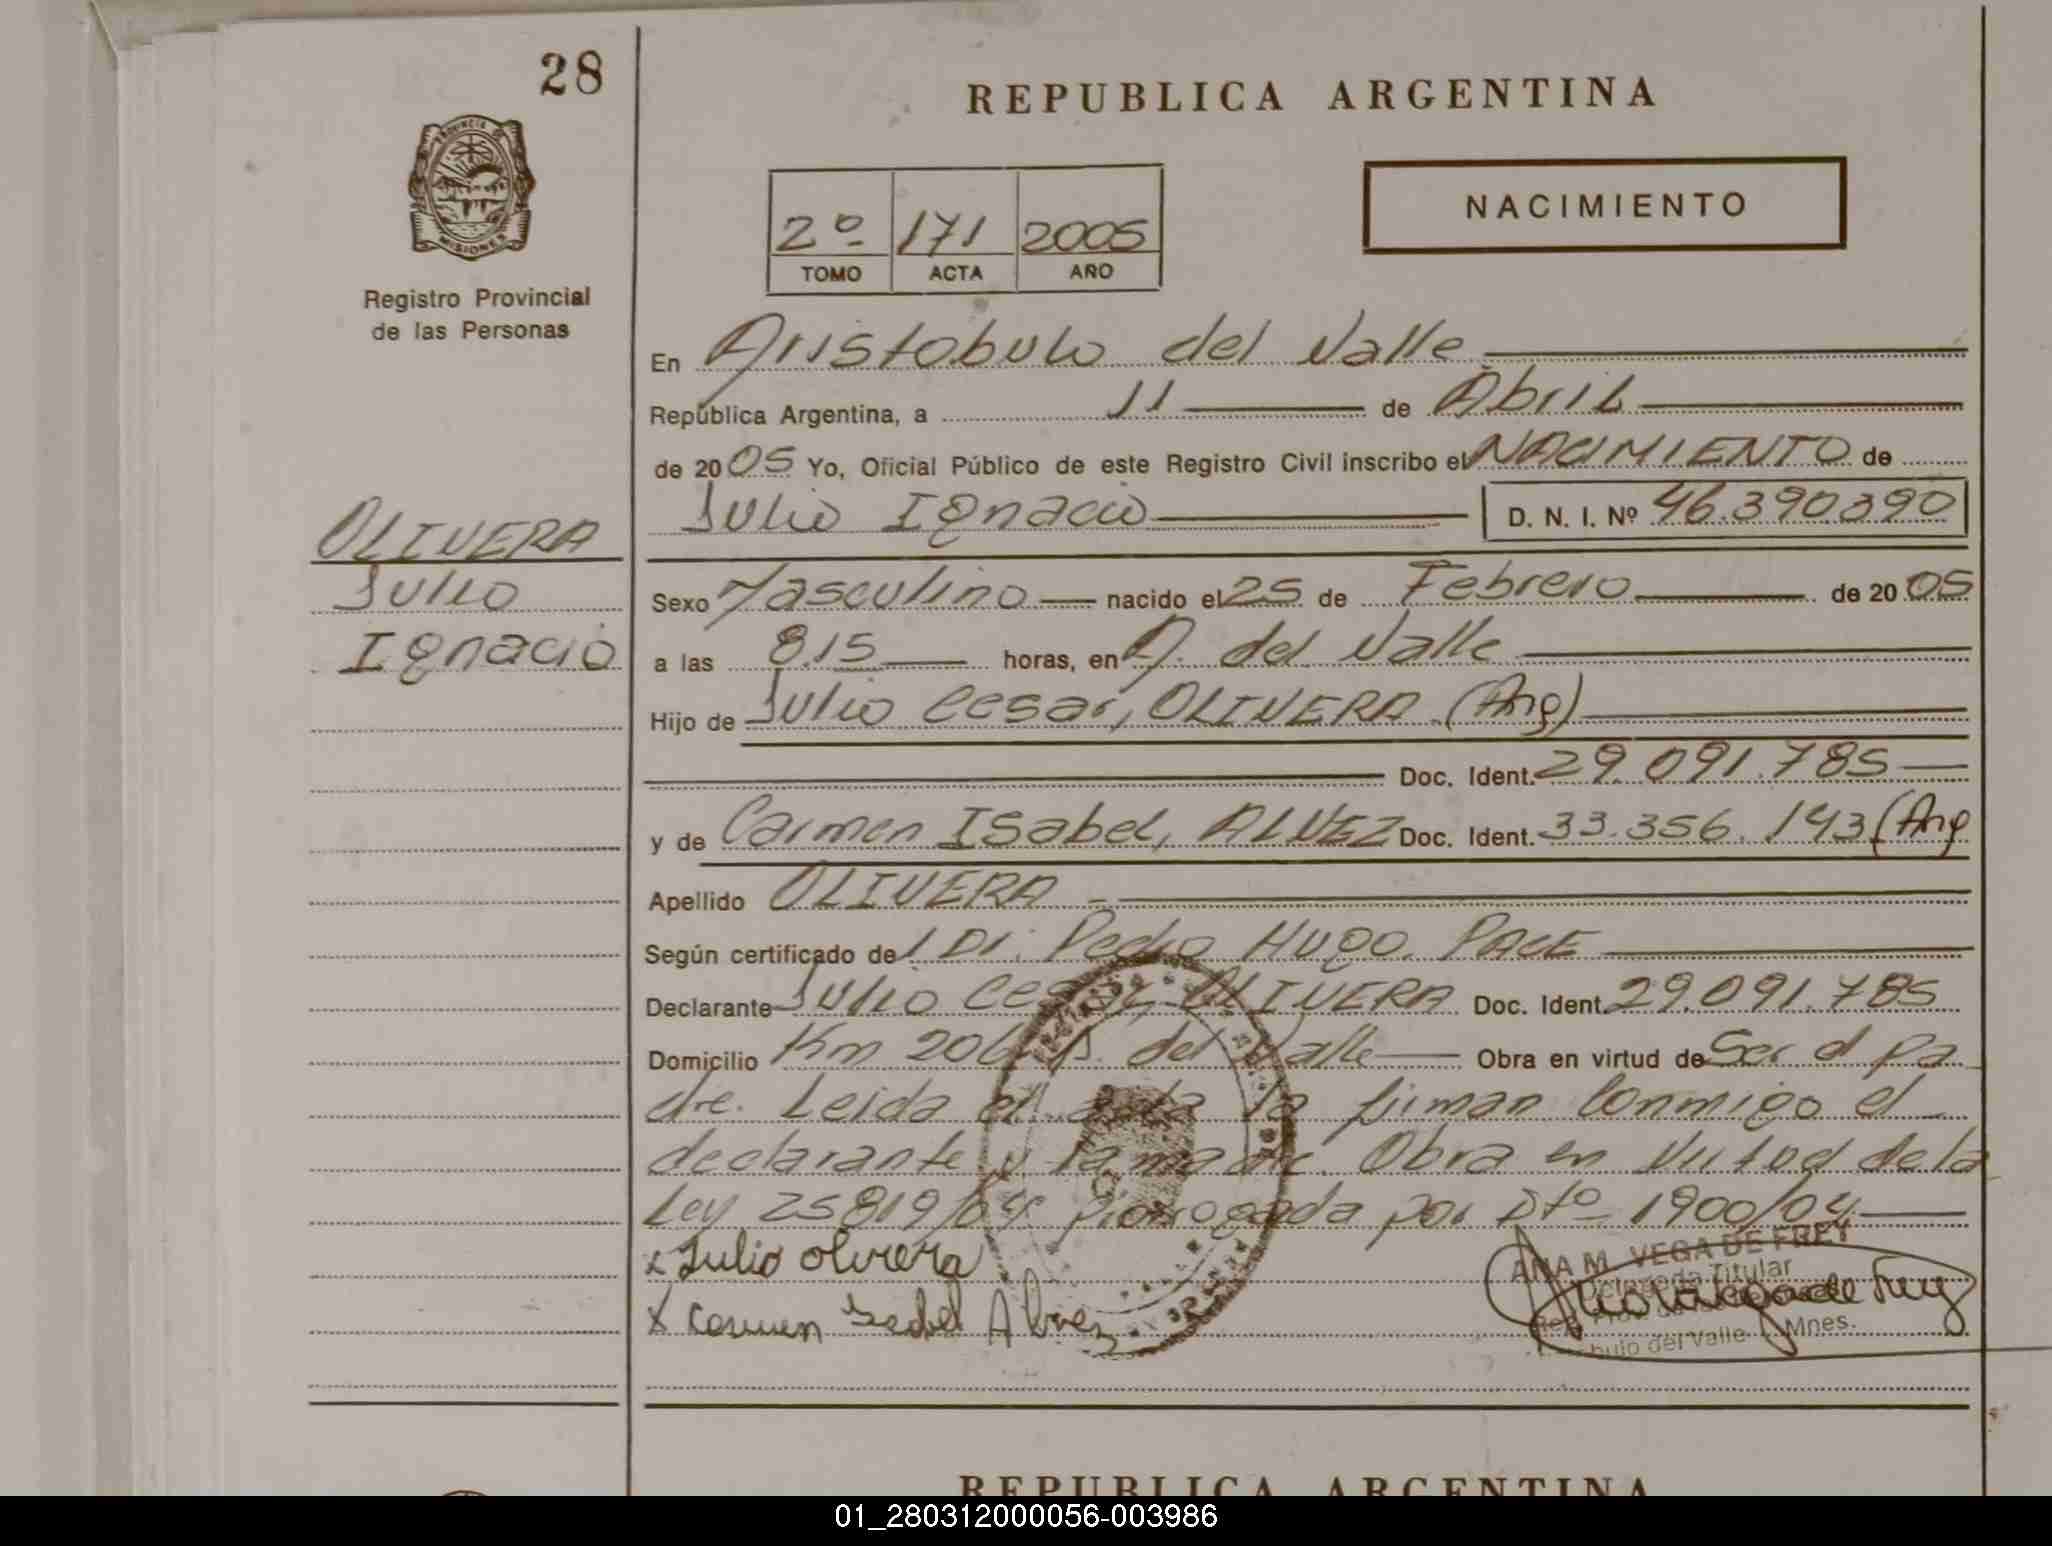 28
REPUBLICA ARGENTINA
PROVINCIA DE
MISIONES
Registro Provincial
de las Personas
2º 171 2005
TOMO ACTA AÑO
NACIMIENTO
En Aristobulo del Valle
República Argentina, a 11 de Abril
de 2005 Yo, Oficial Público de este Registro Civil inscribo el NACIMIENTO de
Julio Ignacio D. N. I. Nº 46.390.390
OLIVERA
Julio
Ignacio
Sexo Masculino nacido el 25 de Febrero de 2005
a las 8.15 horas, en A. del Valle
Hijo de Julio Cesar, OLIVERA (Arg)
Doc. Ident. 29.091.785
y de Carmen Isabel, ALVEZ Doc. Ident. 33.356.143 (Arg
Apellido OLIVERA
Según certificado de Dr. Pedro Hugo PACE
Declarante Julio Cesar, OLIVERA Doc. Ident. 29.091.785
Domicilio Km 206 A. del Valle Obra en virtud de Ser el pa
dre. Leida el acta la firman conmigo el
declarante y la madre. Obra en Virtud de la
Ley 25819/04 prorrogada por Dtº 1900/04
x Julio olivera
x Carmen Isabel Alvez
ANA M. VEGA DE FREY
Delegada Titular
del Valle Mnes.
REPUBLICA ARGENTINA
01_280312000056-003986